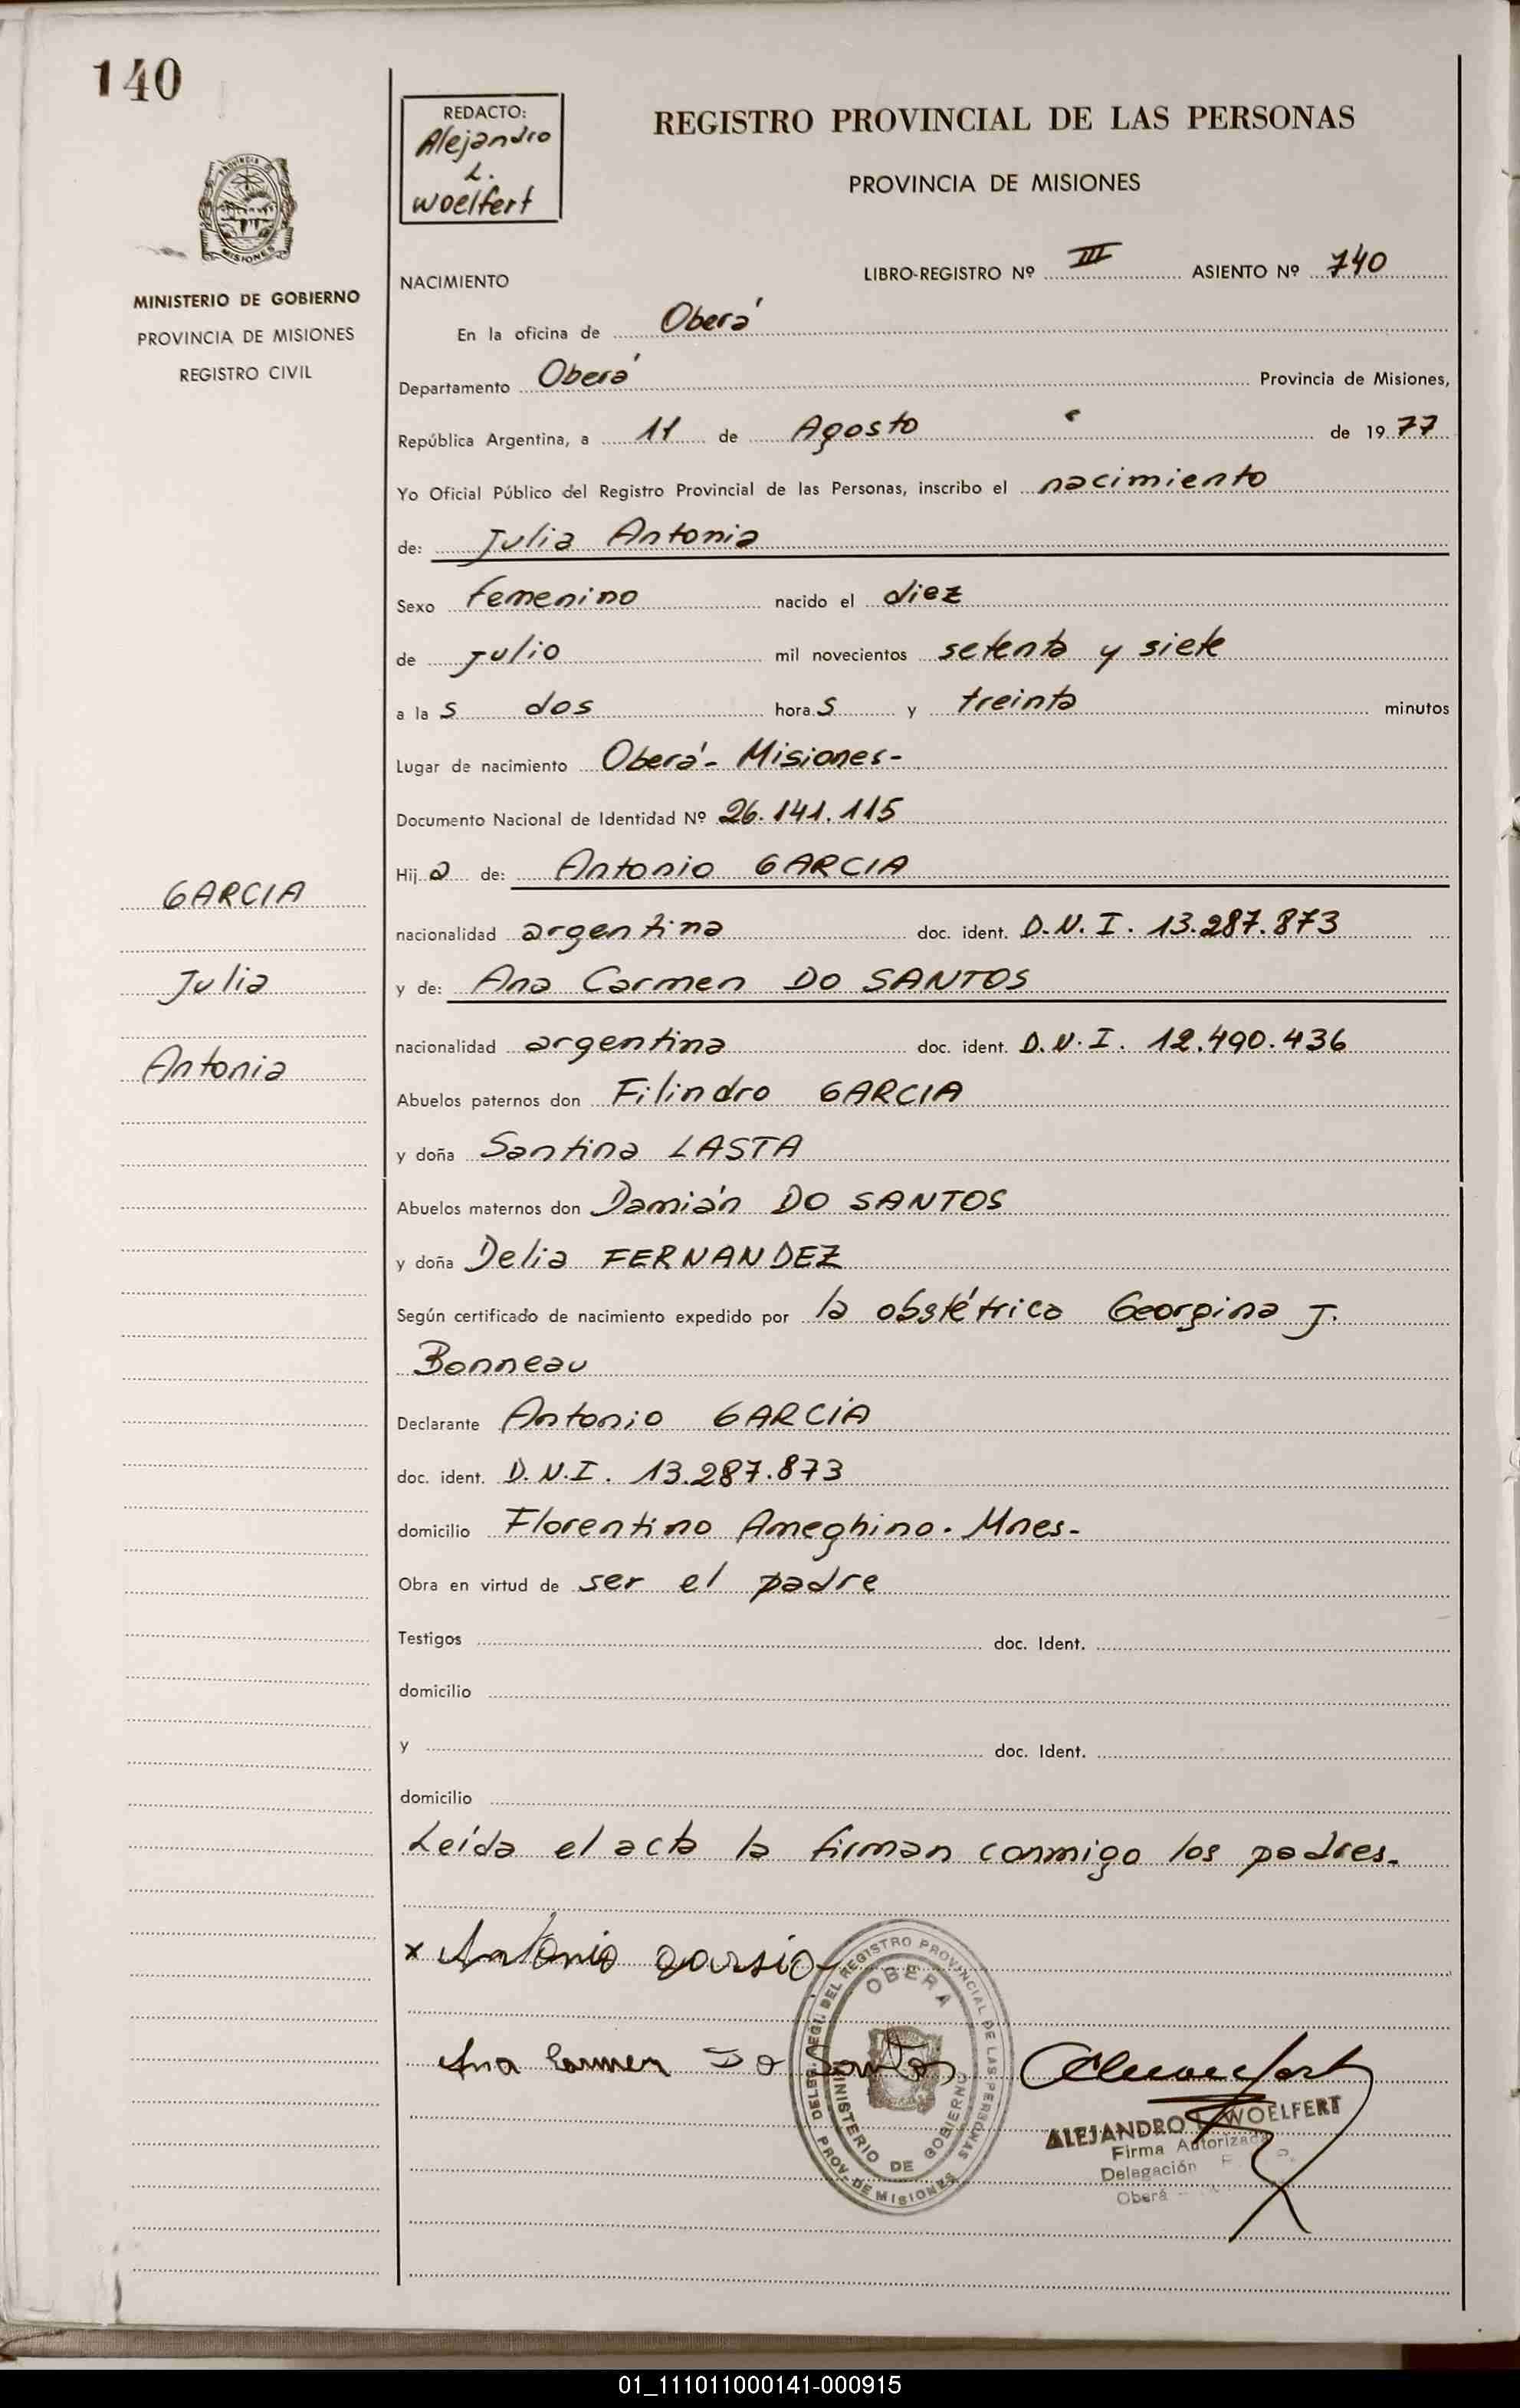 140
REDACTO:
Alejandro
L.
Woelfert
REGISTRO PROVINCIAL DE LAS PERSONAS
PROVINCIA DE MISIONES
PROVINCIA DE
MISIONES
MINISTERIO DE GOBIERNO
PROVINCIA DE MISIONES
REGISTRO CIVIL
NACIMIENTO
LIBRO-REGISTRO Nº III ASIENTO Nº 740
En la oficina de Oberá
Departamento Oberá Provincia de Misiones,
República Argentina, a 11 de Agosto de 1977
Yo Oficial Público del Registro Provincial de las Personas, inscribo el nacimiento
de: Julia Antonia
Sexo femenino nacido el diez
de julio mil novecientos setenta y siete
a las dos horas y treinta minutos
Lugar de nacimiento Oberá - Misiones-
Documento Nacional de Identidad Nº 26.141.115
Hija de: Antonio GARCIA
nacionalidad argentina doc. ident. D.N.I. 13.287.873
y de: Ana Carmen DO SANTOS
nacionalidad argentina doc. ident. D.N.I. 12.490.436
GARCIA
Julia
Antonia
Abuelos paternos don Filindro GARCIA
y doña Santina LASTA
Abuelos maternos don Damián DO SANTOS
y doña Delia FERNANDEZ
Según certificado de nacimiento expedido por la obstétrica Georgina J.
Bonneau
Declarante Antonio GARCIA
doc. ident. D.N.I. 13.287.873
domicilio Florentino Ameghino. Mnes-
Obra en virtud de ser el padre
Testigos doc. Ident.
domicilio
y doc. Ident.
domicilio
Leída el acta la firman conmigo los padres.
x Antonio garsia
Ana Carmen Do Santos
DELEG. REGL. DEL REGISTRO PROVINCIAL DE LAS PERSONAS
OBERA
MINISTERIO DE GOBIERNO
PROV. DE MISIONES
ALEJANDRO L. WOELFERT
Firma Autorizada
Delegación
Oberá
01_111011000141-000915